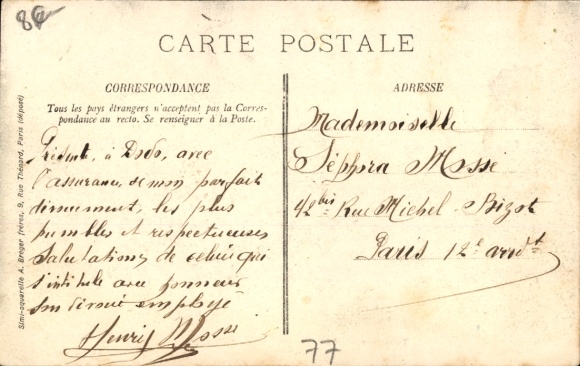 86
CARTE POSTALE
CORRESPONDANCE
Tous les pays étrangers n'acceptent pas la Corres-
pondance au recto. Se renseigner à la Poste.
Président, à Dodo, avec
l'assurance de mon parfait
dévouement, les plus
humbles et respectueuses
salutations de celui qui
s'intitule avec honneur
son dévoué employé
Henri Mosse
ADRESSE
Mademoiselle
Séphora Mosse
42bis Rue Michel-Bizot
Paris 12e arrondt
77
Simi-aquarelle A. Breger frères, 9, Rue Thénard, Paris (déposé)